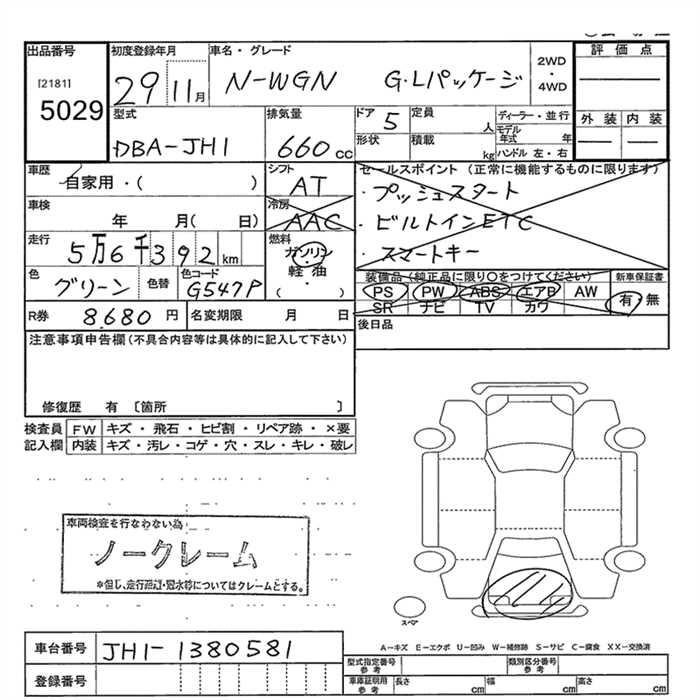 出品番号 初度登録年月 車名・グレード
[2181] 29 11月 N-WGN G・Lパッケージ 2WD・4WD 評価点
5029 型式 排気量 ドア 定員 ディーラー・並行 外装 内装
DBA-JH1 660cc 5 人 モデル年式 年
形状 積載 kg ハンドル 左・右
車歴 シフト セールスポイント (正常に機能するものに限ります)
自家用・( ) AT ・プッシュスタート
車検 冷房 ・ビルトインETC
年 月( 日) AAC ・スマートキー
走行 燃料
5万6千392km ガソリン・軽油( )
色 色替 色コード 装備品(純正品に限り〇をつけてください) 新車保証書
グリーン G547P PS PW ABS エアB AW 有・無
SR ナビ TV カワ
R券 8,680円 名変期限 月 日 後日品
注意事項申告欄(不具合内容等は具体的に記入して下さい)
修復歴 有 〔箇所 〕
検査員 FW キズ・飛石・ヒビ割・リペア跡・×要
記入欄 内装 キズ・汚レ・コゲ・穴・スレ・キレ・破レ
車両検査を行なわない為
ノークレーム
*但し、走行距離・冠水等についてはクレームとする。
スペア
A-キズ E-エクボ U-凹み W-補修跡 S-サビ C-腐食 XX-交換済
車台番号 JH1-1380581 型式指定番号 参考 類別区分番号 参考
登録番号 車庫証明用 参考 長さ cm 幅 cm 高さ cm